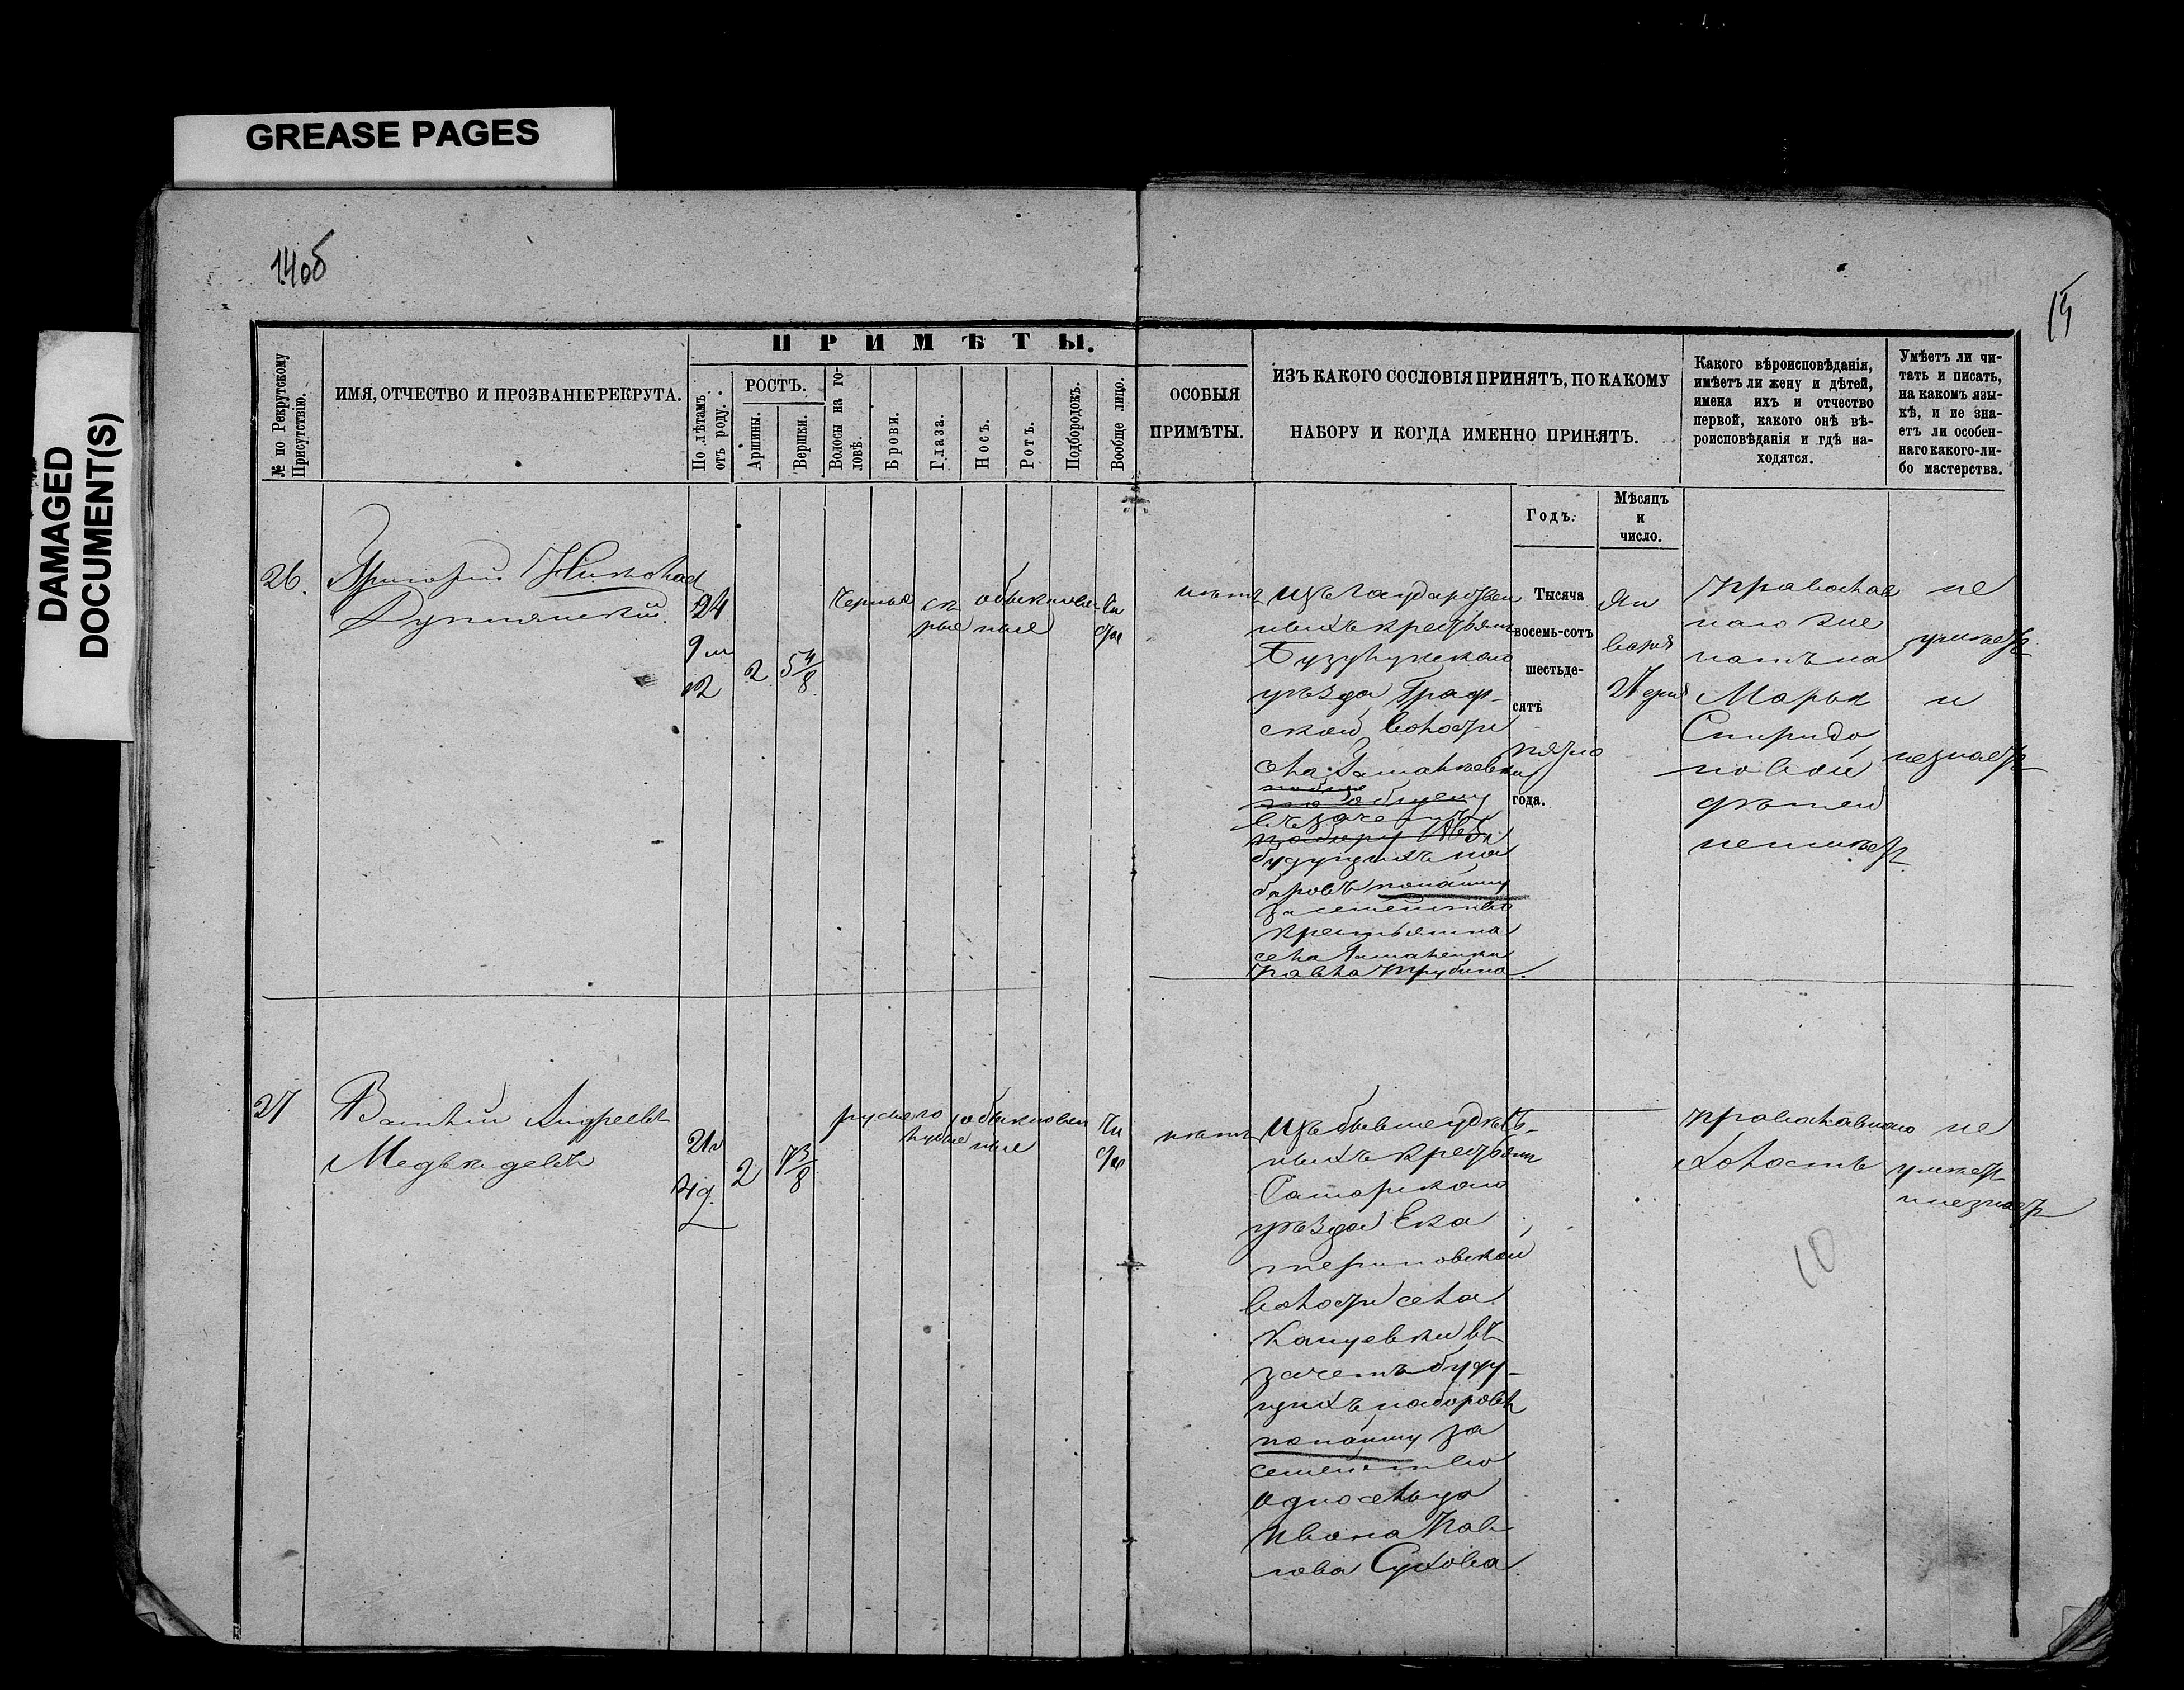 GREASE PAGES
DAMAGED
DOCUMENT(S)
14об
15
ПРИМѢТЫ.
№ по Рекрутскому
Присутствію.
ИМЯ, ОТЧЕСТВО И ПРОЗВАНІЕ РЕКРУТА.
По лѣтамъ
отъ роду.
РОСТЪ.
Аршины.
Вершки.
Волосы на го-
ловѣ.
Брови.
Глаза.
Носъ.
Ротъ.
Подбородокъ.
Вообще лицо.
ОСОБЫЯ
ПРИМѢТЫ.
ИЗЪ КАКОГО СОСЛОВІЯ ПРИНЯТЪ, ПО КАКОМУ
НАБОРУ И КОГДА ИМЕННО ПРИНЯТЪ.
Какого вѣроисповѣданія,
имѣетъ ли жену и дѣтей,
имена ихъ и отчество
первой, какого онѣ вѣ-
роисповѣданія и гдѣ на-
ходятся.
Умѣетъ ли чи-
тать и писать,
на какомъ язы-
кѣ, и не зна-
етъ ли особен-
наго какого-ли-
бо мастерства.
Годъ.
Мѣсяцъ
и
число.
26.
Григорій Николаев
24
9 м
12
2
5 4/8
черные
сѣ
рые
обыкновен
ные
чи
стое
нѣтъ
изъ Государствен
ныхъ крестьянъ
Бузулукскаго
уѣзда, Граф-
ской волости
села
въ зачетъ
будущихъ на
боровъ по найму
за семейство
крестьянина
села
Павла
Тысяча
восемь-сотъ
шестьде-
сятъ
пятого
года.
Ян
варя
27 дня
Православ
наго же
натъ на
Марьѣ
Спиридо
новой
дѣтей
неимѣетъ
не
умѣетъ
и
незнаетъ
27
Василій Андреевъ
Медвѣдевъ
21 г
14 д.
2
7 3/8
русые
го
лубые
обыкновен
ные
чи
стое
нѣтъ
изъ бывшеудѣль-
ныхъ крестьян
Самарскаго
уѣзда Ека
териновской
волости села
Кануевки въ
зачетъ буду-
щихъ наборовъ
по найму за
семейство
односельца
Ивана Пав
лова Сухова.
Православнаго
холостъ
не
умѣетъ
и незнаетъ
10